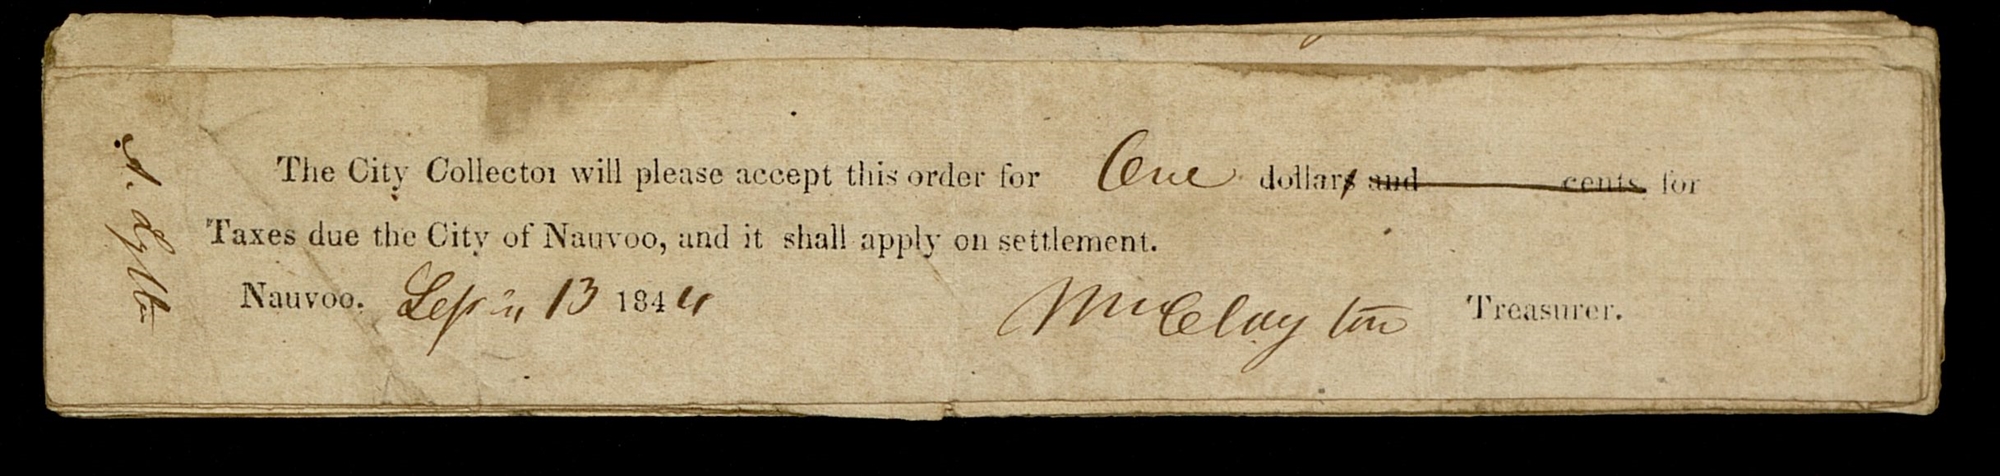 A. Lytle
The City Collector will please accept this order for One dollars and cents for
Taxes due the City of Nauvoo, and it shall apply on settlement.
Nauvoo. Sep. 13 1844 Wm Clayton Treasurer.